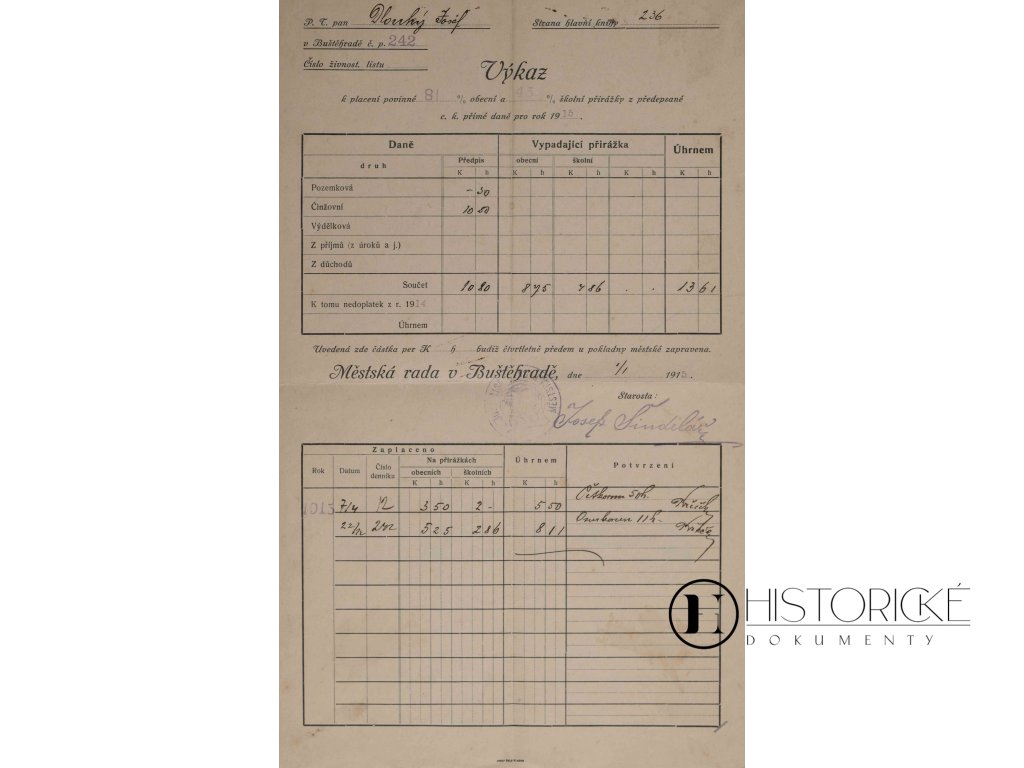 P. T. pan Dlouhý Josef
Strana hlavní knihy 236
v Buštěhradě č. p. 242
Číslo živnost. listu
Výkaz
k placení povinné 81 % obecní a 45 % školní přirážky z předepsané
c. k. přímé daně pro rok 1915.
Daně Vypadající přirážka Úhrnem
druh Předpis obecní školní
K h K h K h K h K h
Pozemková – 30
Činžovní 10 50
Výdělková
Z příjmů (z úroků a j.)
Z důchodů
Součet 10 80 8 75 4 86 . . 13 61
K tomu nedoplatek z r. 1914
Úhrnem
Uvedená zde částka per K h budiž čtvrtletně předem u pokladny městské zapravena.
Městská rada v Buštěhradě, dne 1/1 1915.
Starosta:
Josef Šindelář
Zaplaceno
Rok Datum Číslo denníku Na přirážkách Úhrnem Potvrzení
obecních školních
K h K h K h
1915 7/4 12 3 50 2 – 5 50 50 h.
242 5 25 2 86 8 11 11 h.
HISTORICKÉ
DOKUMENTY